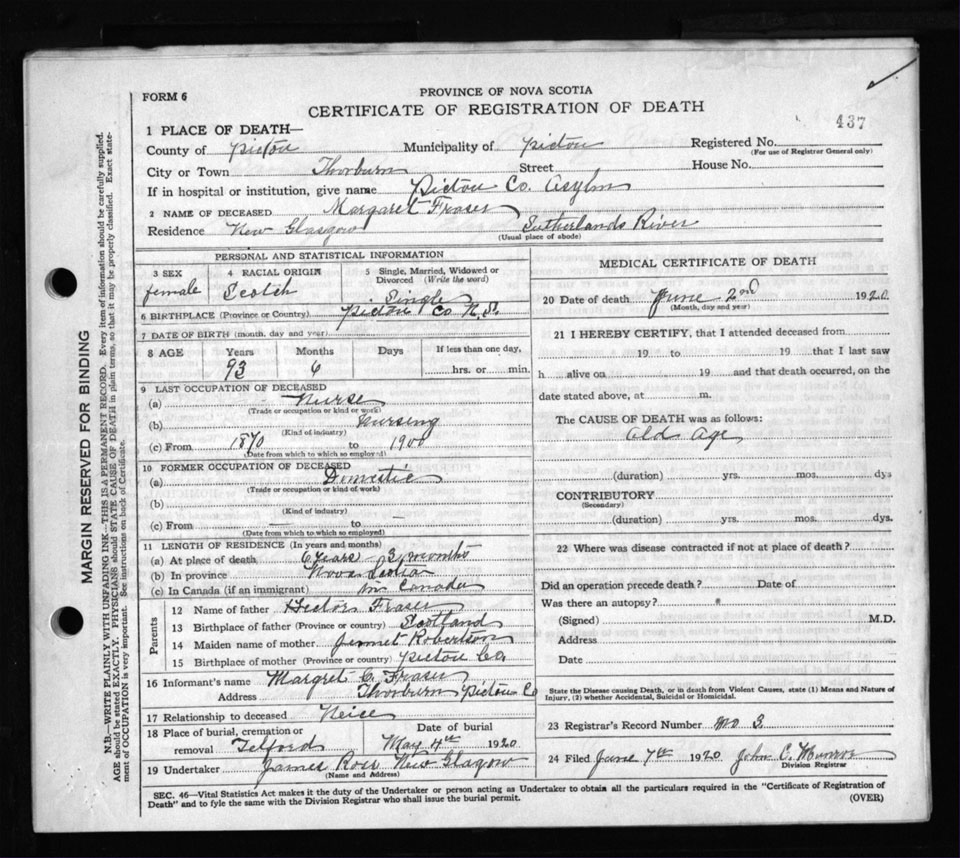 PROVINCE OF NOVA SCOTIA
FORM 6
CERTIFICATE OF REGISTRATION OF DEATH
437
1 PLACE OF DEATH—
County of Pictou Municipality of Pictou Registered No.
(For use of Registrar General only)
City or Town Thorburn Street House No.
If in hospital or institution, give name Pictou Co. Asylm
2 NAME OF DECEASED Margaret Fraser
Residence New Glasgow Sutherlands River
(Usual place of abode)
PERSONAL AND STATISTICAL INFORMATION
3 SEX 4 RACIAL ORIGIN 5 Single, Married, Widowed or Divorced (Write the word)
female Scotch Single
6 BIRTHPLACE (Province or Country) Pictou Co N.S.
7 DATE OF BIRTH (month, day and year)
8 AGE Years Months Days If less than one day,
93 6 hrs. or min.
9 LAST OCCUPATION OF DECEASED
(a) Nurse
(Trade or occupation or kind of work)
(b) Nursing
(Kind of industry)
(c) From 1870 to 1900
(Date from which to which so employed)
10 FORMER OCCUPATION OF DECEASED
(a) Domestic
(Trade or occupation or kind of work)
(b)
(Kind of industry)
(c) From — to —
(Date from which to which so employed)
11 LENGTH OF RESIDENCE (In years and months)
(a) At place of death 6 years - 3 months
(b) In province Nova Scotia
(c) In Canada (if an immigrant) in Canada
Parents
12 Name of father Hector Fraser
13 Birthplace of father (Province or country) Scotland
14 Maiden name of mother Jennet Robertson
15 Birthplace of mother (Province or country) Pictou Co.
16 Informant's name Margret C. Fraser
Address Thorburn Pictou Co
17 Relationship to deceased Neice
18 Place of burial, cremation or Date of burial
removal Telford May 4th 1920
19 Undertaker James Rose New Glagow
(Name and Address)
MEDICAL CERTIFICATE OF DEATH
20 Date of death June 2nd 1920.
(Month, day and year)
21 I HEREBY CERTIFY, that I attended deceased from
19 to 19 that I last saw
h alive on 19 and that death occurred, on the
date stated above, at m.
The CAUSE OF DEATH was as follows:
Old Age
(duration) yrs. mos. dys.
CONTRIBUTORY
(Secondary)
(duration) yrs. mos. dys.
22 Where was disease contracted if not at place of death?
Did an operation precede death? Date of
Was there an autopsy?
(Signed) M.D.
Address
Date
State the Disease causing Death, or in death from Violent Causes, state (1) Means and Nature of
Injury, (2) whether Accidental, Suicidal or Homicidal.
23 Registrar's Record Number No 3
24 Filed June 7th 1920 John C. Munro
Division Registrar
SEC. 46—Vital Statistics Act makes it the duty of the Undertaker or person acting as Undertaker to obtain all the particulars required in the "Certificate of Registration of
Death" and to fyle the same with the Division Registrar who shall issue the burial permit. (OVER)
MARGIN RESERVED FOR BINDING
N.B.—WRITE PLAINLY WITH UNFADING INK—THIS IS A PERMANENT RECORD. Every item of information should be carefully supplied.
AGE should be stated EXACTLY. PHYSICIANS should STATE CAUSE OF DEATH in plain terms, so that it may be properly classified. Exact state-
ment of OCCUPATION is very important. See instructions on back of Certificate.